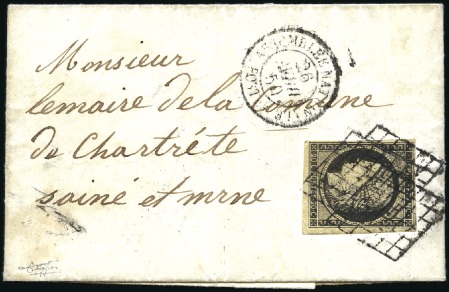 Monsieur
lemaire de la Comune
de Chartréte
sainé et mrne
ASSEMBLEE NATIONALE
26
50